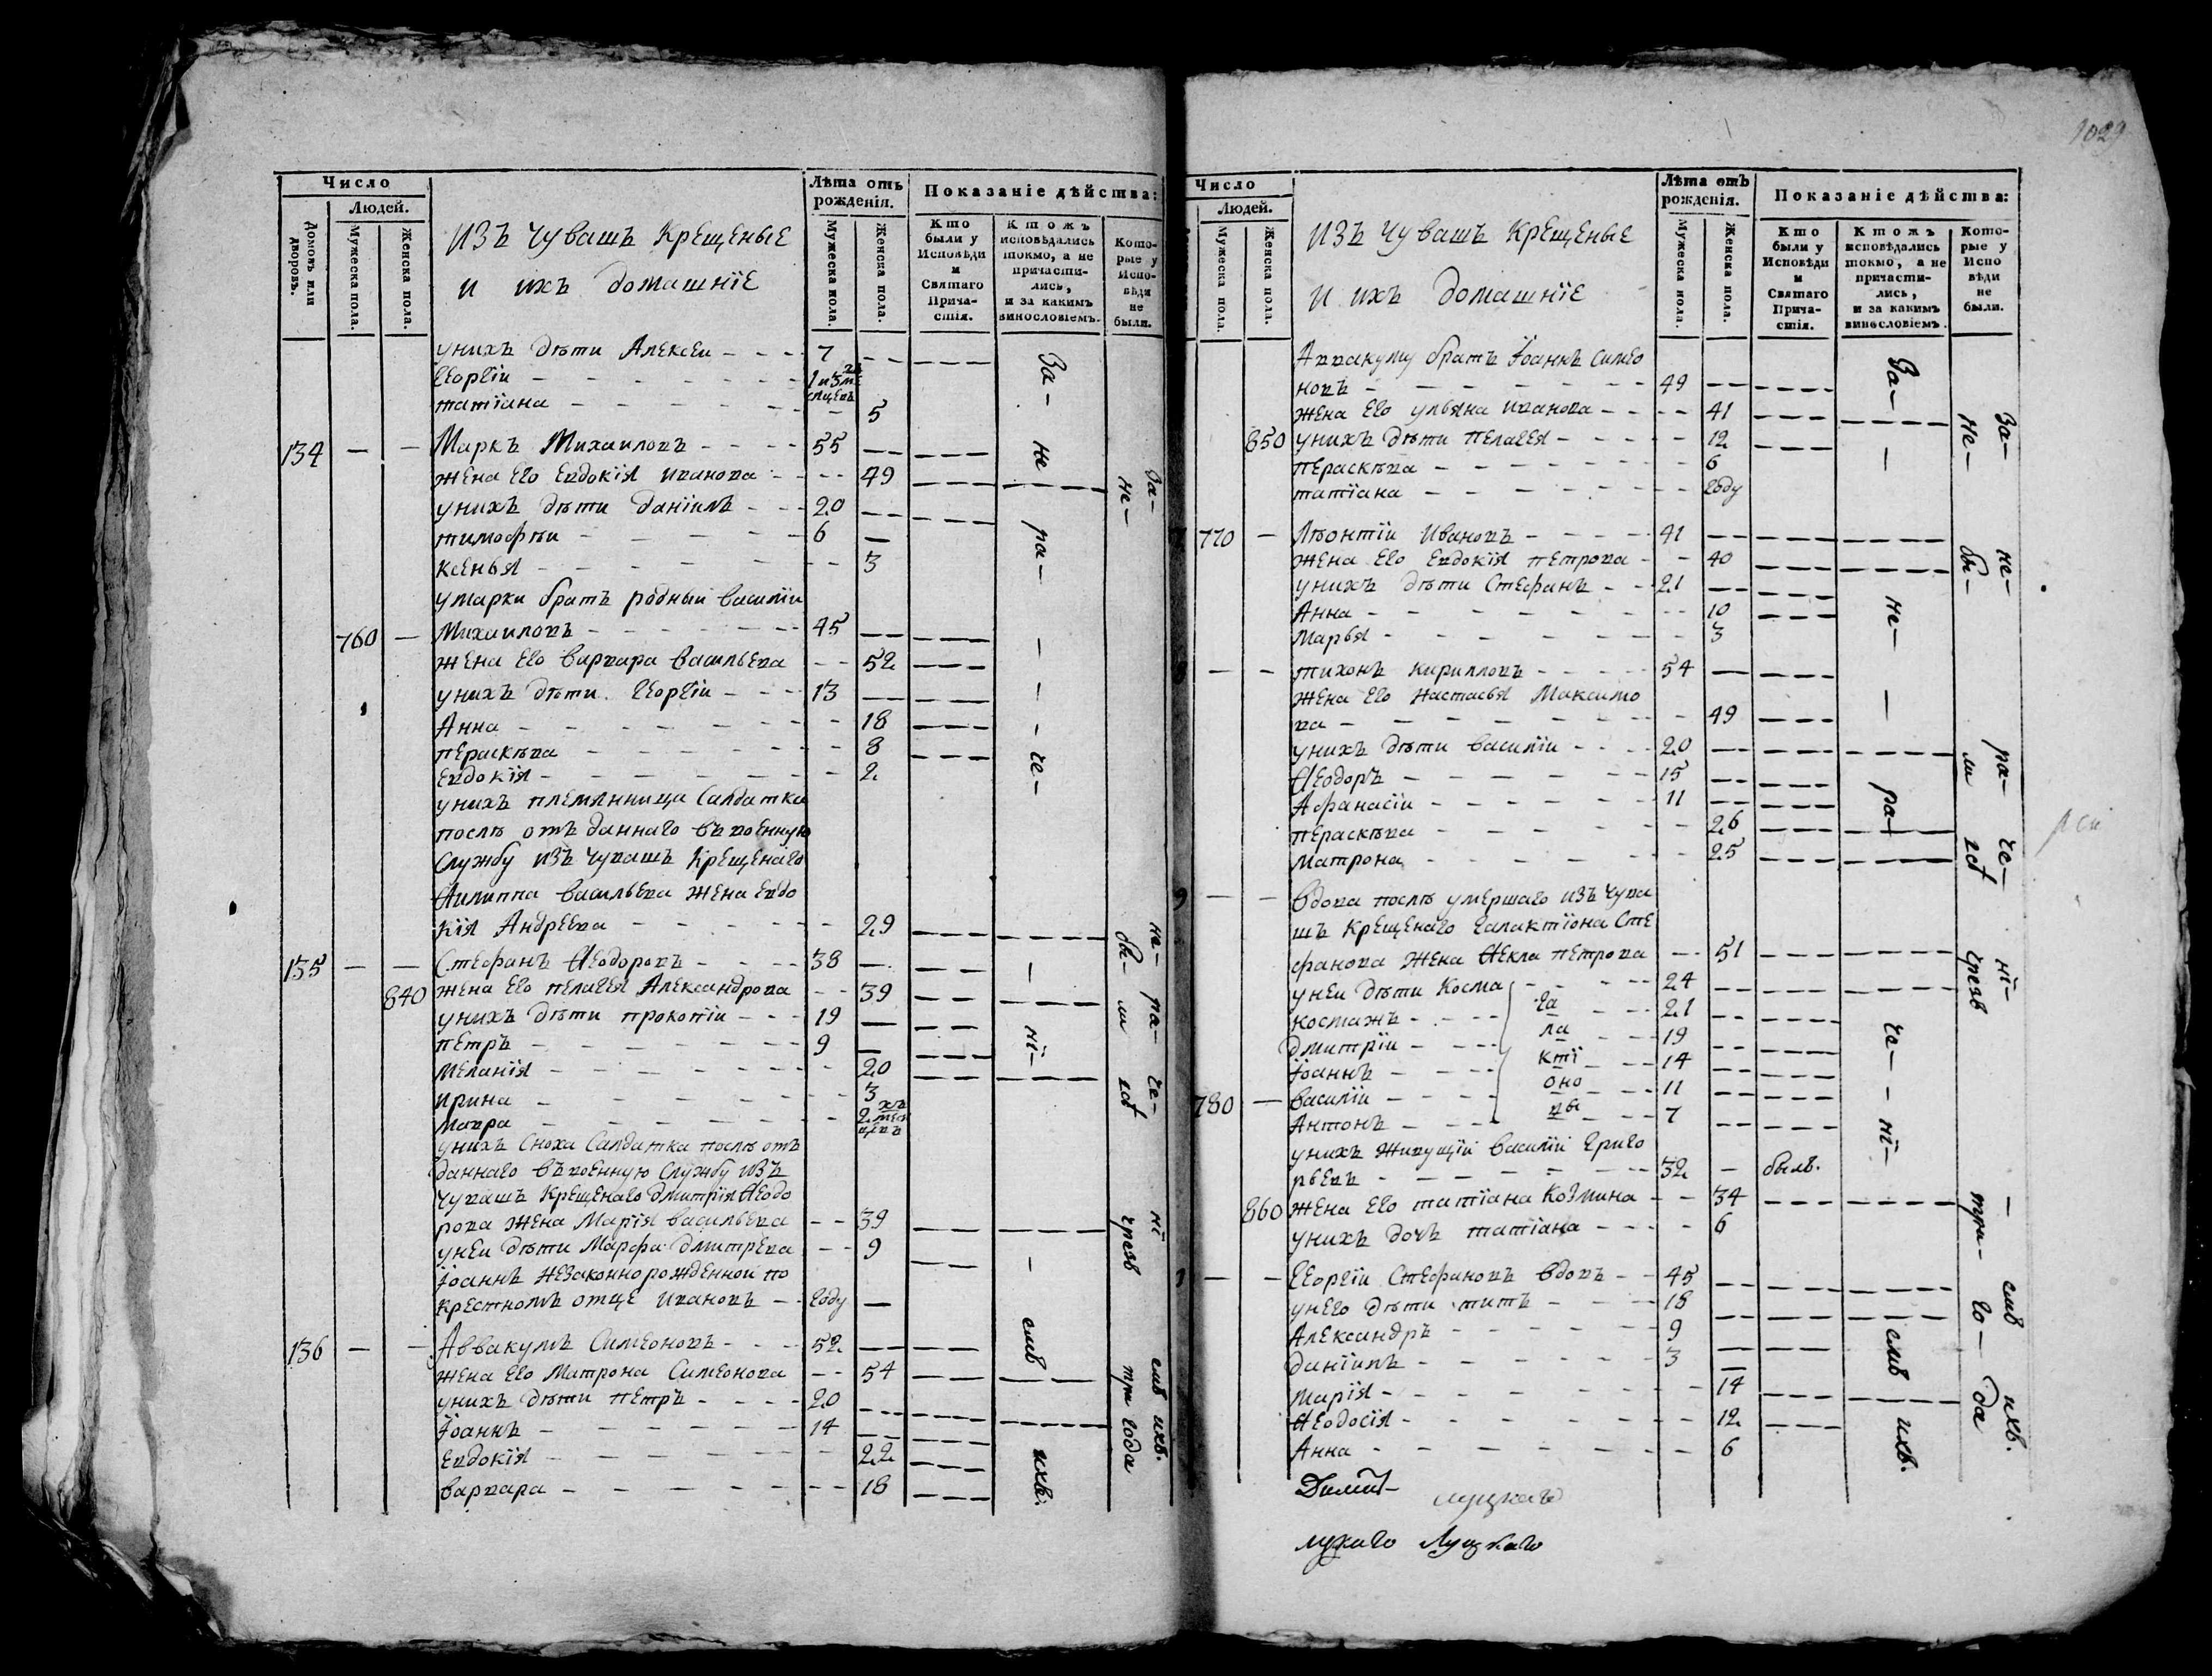 Число
Людей.
Домовъ или дворовъ.
Мужеска пола.
Женска пола.
ИЗЪ ЧУВАШЪ КРЕЩЕНЫЕ
И ИХЪ ДОМАШНІЕ
Лѣта отъ рожденія.
Мужеска пола.
Женска пола.
Показаніе дѣйства:
Кто были у Исповѣди и Святаго Причастія.
Ктожъ исповѣдались токмо, а не причастились, и за какимъ винословіемъ.
Которые у Исповѣди не были.
унихъ дѣти Алексеи - - - 7
Георгіи - - -
татіана - - - 5
134 — — Маркъ Михаиловъ - - - 55
жена Его Евдокія иванова - - 49
унихъ дѣти Даніилъ - - 20
тимофѣи - - - 6
ксенья - - - 3
умарки братъ родныи Василіи
760 — Михаиловъ - - - 45
жена Его варвара васильева - - 52
унихъ дѣти Георгіи - - - 13
Анна - - - 18
пераскѣва - - - 8
Евдокія - - - 2
унихъ племянница салдатка
послѣ отъ даннаго въ военную
службу изъ чувашъ крещенаго
Филиппа васильева жена Евдо
кія Андреева - - - 29
135 — — Стефанъ Ѳеодоровъ - - - 38
840 жена Его пелагея Александрова - - 39
унихъ дѣти прокопіи - - - 19
петръ - - - 9
меланія - - - 20
ирина - - - 3
мавра - - -
унихъ сноха салдатка послѣ отъ
даннаго въ военную службу изъ
чувашъ крещенаго дмитрія Ѳеодо
рова жена Марія васильева - - 39
унеи дѣти Марфа дмитрева - - 9
іоаннъ незаконнорожденнои по
крестномъ отце ивановъ - - году
136 — — Аввакумъ Симеоновъ - - - 52
жена Его Матрона Симеонова - - 54
унихъ дѣти петръ - - - 20
іоаннъ - - - 14
Евдокія - - - 22
варвара - - - 18
За- не ра- че- ні- емъ ихъ.
За- не- ра- че- ні емъ ихъ.
не- бы- ли три года
1029
Число
Людей.
Мужеска пола.
Женска пола.
ИЗЪ ЧУВАШЪ КРЕЩЕНЫЕ
И ИХЪ ДОМАШНІЕ
Лѣта отъ рожденія.
Мужеска пола.
Женска пола.
Показаніе дѣйства:
Кто были у Исповѣди и Святаго Причастія.
Ктожъ исповѣдались токмо, а не причастились, и за какимъ винословіемъ.
Которые у Исповѣди не были.
Аввакуму братъ іоаннъ симео
новъ - - - 49
жена Его ульяна иванова - - 41
850 унихъ дѣти пелагея - - - 12
пераскѣва - - - 6
татіана - - - году
770 — Лѣонтіи Ивановъ - - - 41
жена Его Евдокія петрова - - 40
унихъ дѣти Стефанъ - - 21
Анна - - - 10
Марья - - - 3
8 — — тихонъ кирилловъ - - - 54
жена Его настасья Максимо
ва - - - 49
унихъ дѣти василіи - - - 20
Ѳеодоръ - - - 15
Афанасіи - - - 11
пераскѣва - - - 26
матрона - - - 25
9 — — вдова послѣ умершаго изъ чува
шъ крещенаго галактіона Сте
фанова жена Ѳекла петрова - - 51
унеи дѣти Косма - - - 24
костажъ - - - 21
дмитріи - - - 19
іоаннъ - - - 14
780 — василіи - - - 11
Антонъ - - - 7
га ла кті оно вы
унихъ живущіи василіи григо
рьевъ - - - 32 — былъ.
860 жена Его татіана козмина - - 34
унихъ дочь татіана - - - 6
Георгіи Стефановъ вдовъ - - 45
унего дѣти титъ - - - 18
Александръ - - - 9
даніилъ - - - 3
марія - - - 14
Ѳеодосія - - - 12
Анна - - - 6
За- не- ра- че- ні- емъ ихъ.
За- не- ра- че- ні- емъ ихъ.
не- бы- ли три- го- да
Луцкаго